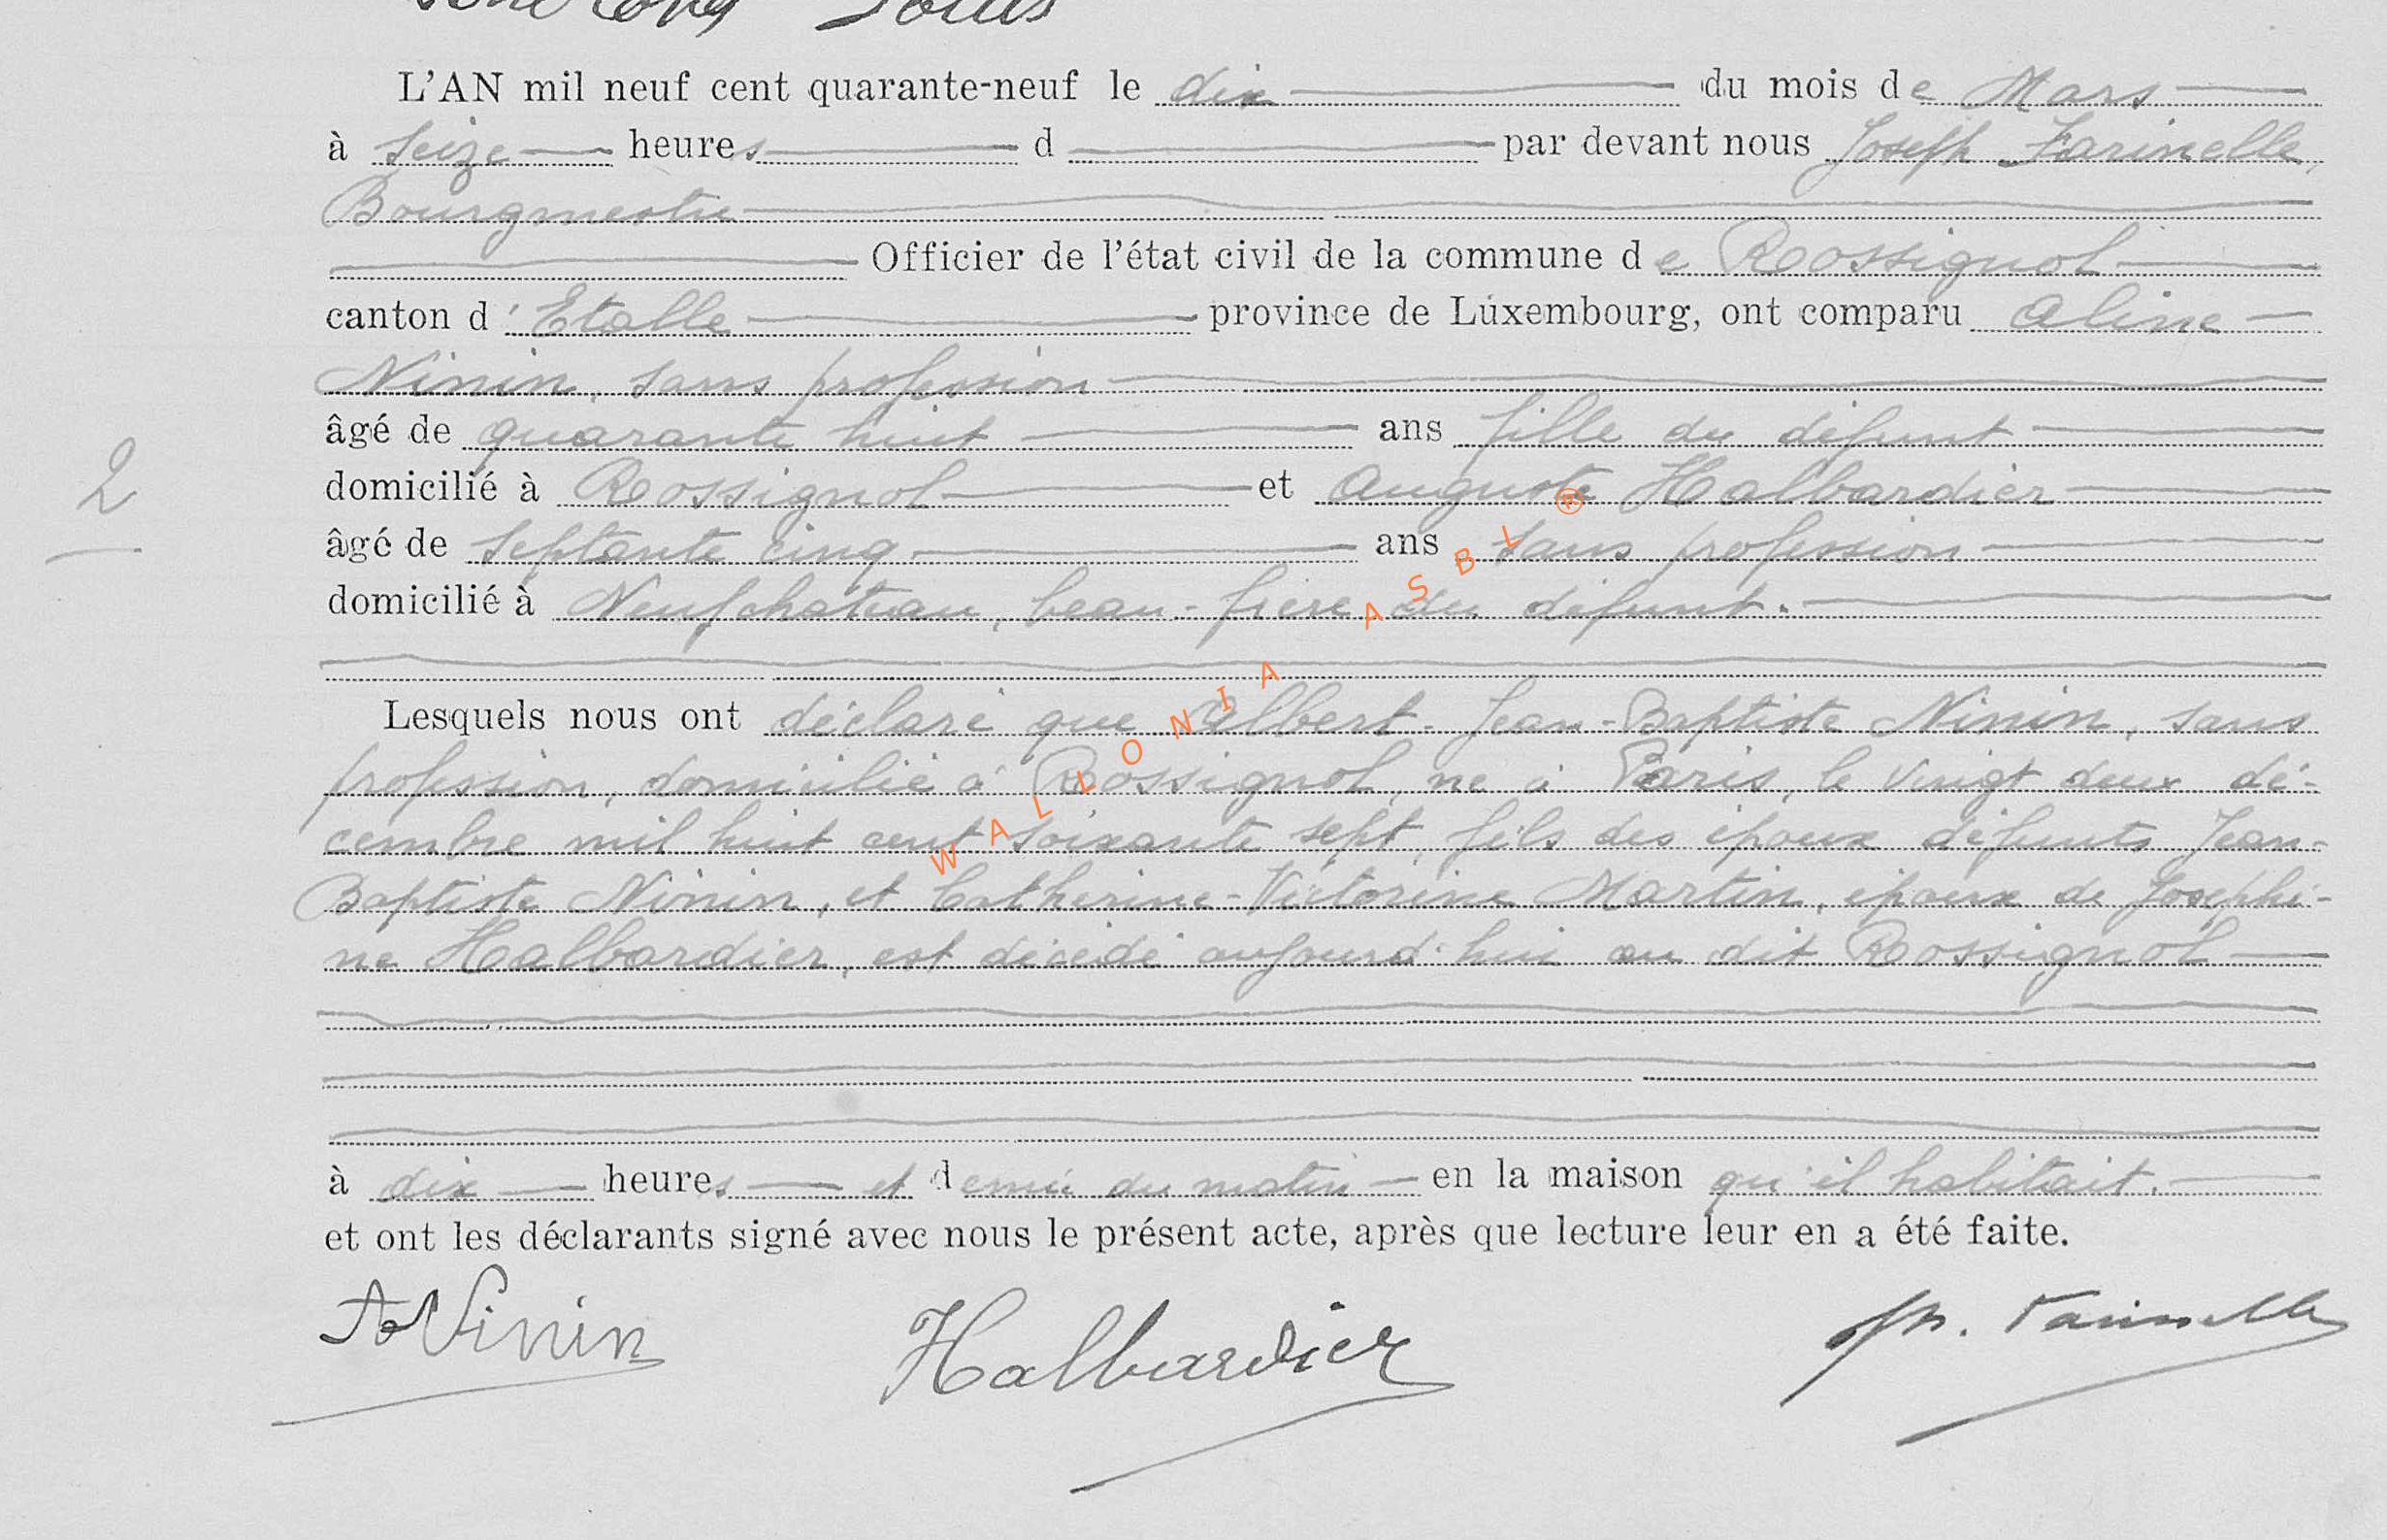 L'AN mil neuf cent quarante-neuf le dix du mois de Mars
à seize heures d par devant nous Joseph Farinelle,
Bourgmestre
Officier de l'état civil de la commune de Rossignol
canton d'Etalle province de Luxembourg, ont comparu Aline
Ninin, sans profession
âgé de quarante huit ans fille du défunt
domicilié à Rossignol et Auguste Halbardier
2
âgé de septante cinq ans sans profession
domicilié à Neufchâteau, beau-frère du défunt.
Lesquels nous ont déclaré que Albert-Jean-Baptiste Ninin, sans
profession, domicilié à Rossignol, né à Paris, le vingt deux dé-
cembre mil huit cent soixante sept, fils des époux défunts Jean-
Baptiste Ninin, et Catherine-Victorine Martin, époux de Joséphi-
ne Halbardier, est décédé aujourd'hui au dit Rossignol
à dix heures et demie du matin en la maison qu'il habitait.
et ont les déclarants signé avec nous le présent acte, après que lecture leur en a été faite.
A Ninin Halbardier Jh. Farinelle
WALLONIA ASBL ®